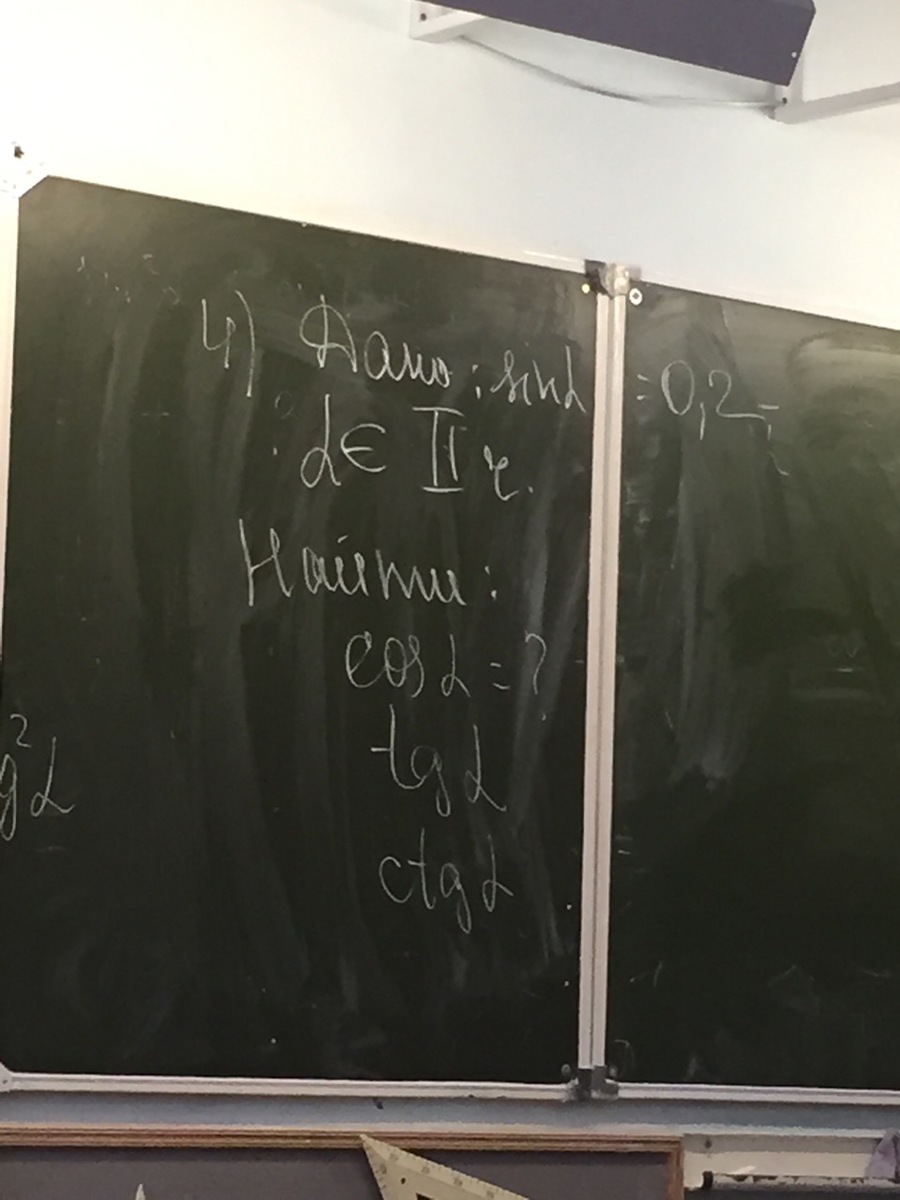 4) Дано: sinα = 0,2;
α ∈ II ч.
Найти:
cosα = ?
tgα
ctgα
g²α